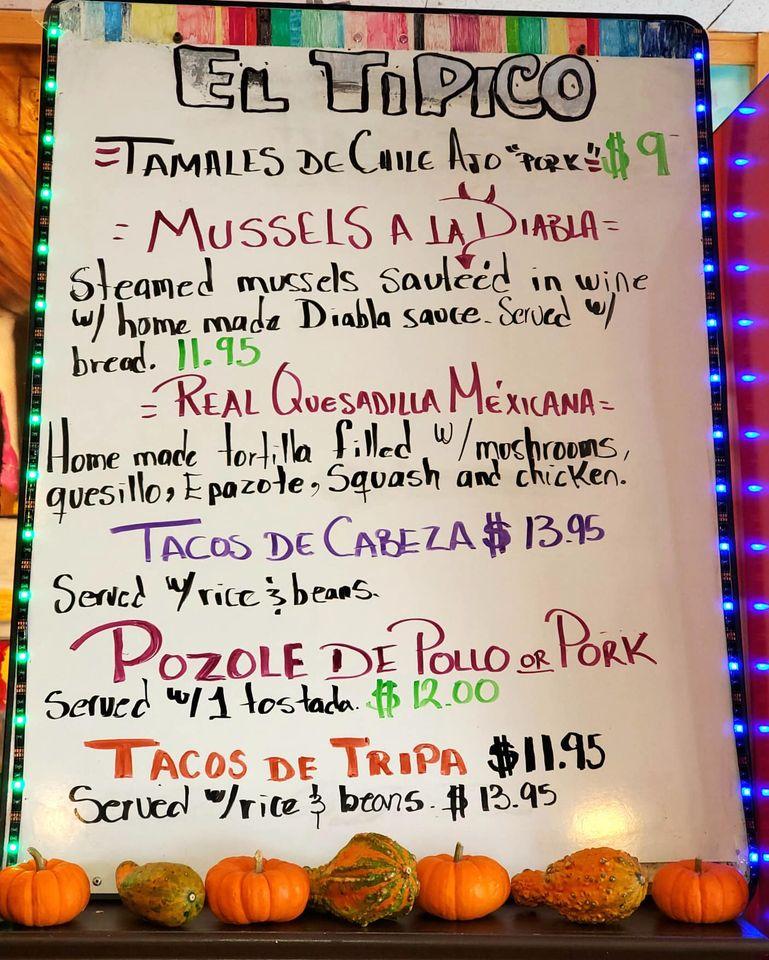 EL TIPICO
=TAMALES DE CHILE AJO "PORK"= $9
= MUSSELS A LA DIABLA=
Steamed mussels sauteéd in wine
w/ home made Diabla sauce. Served w/
bread. 11.95
= REAL QUESADILLA MÉXICANA=
Home made tortilla filled w/mushrooms,
quesillo, Epazote, Squash and chicken.
TACOS DE CABEZA $ 13.95
Served w/rice & beans.
POZOLE DE POLLO OR PORK
Served w/1 tostada. $ 12.00
TACOS DE TRIPA $11.95
Served w/rice & beans. $ 13.95